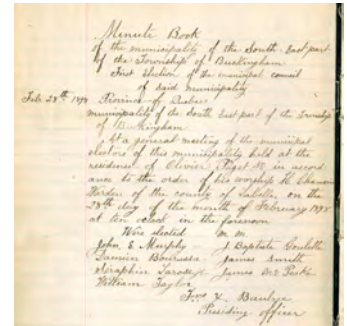 Minute Book
of the municipality of the South-East part
of the Township of Buckingham
First Election of the municipal council
of said municipality
Feb. 28th 1898 Province of Quebec
municipality of the South East part of the Township
of Buckingham
At a general meeting of the municipal
electors of this municipality held at the
residence of Olivier in accord
ance to the order of his worship H.
Warden of the county of Labelle, on the
28th day of the month of February 1898
at ten oclock in the forenoon
Were elected M. M.
John E Murphy J. Baptiste
Damien Bourassa James Smith
Seraphin James
William Taylor
X.
Presiding officer